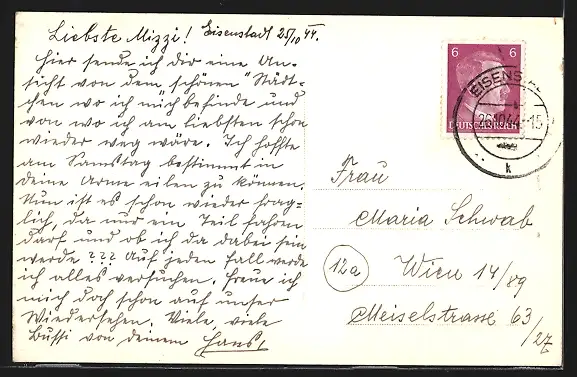 Liebste Mizzi! Eisenstadt 25/10 44.
hier sende ich dir eine An-
sicht von dem "schönen" Städt-
chen wo ich mich befinde und
von wo ich am liebsten schon
wieder weg wäre. Ich hoffte
am Samstag bestimmt in
deine Arme eilen zu können.
Nun ist es schon wieder frag-
lich, da nur ein Teil fahren
darf und ob ich da dabei sein
werde ??? Auf jeden Fall werde
ich alles versuchen. Freue ich
mich doch schon auf unser
Wiedersehen. Viele, viele
Bussi von deinem Hansl
6 6
DEUTSCHES REICH
EISENST
26.10.44-15
k
Frau
Maria Schwab
12a Wien 14/89
Meiselstrasse 63
/27